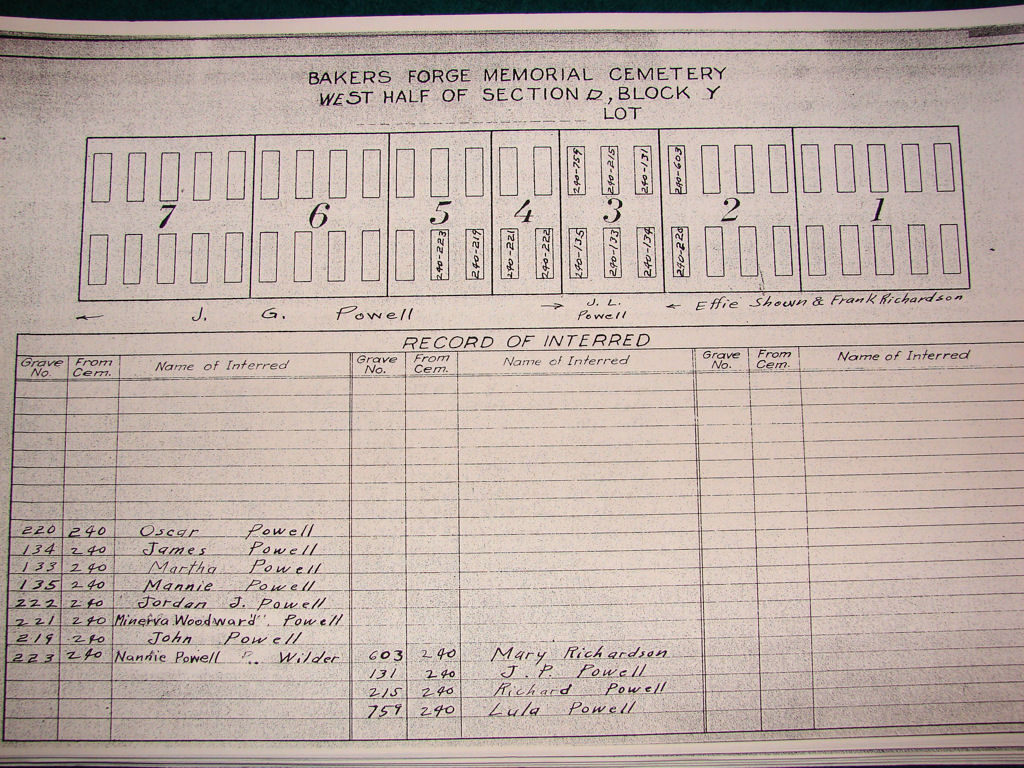 BAKERS FORGE MEMORIAL CEMETERY
WEST HALF OF SECTION D, BLOCK Y
LOT
240-759 240-215 240-131 240-603
7 6 5 4 3 2 1
240-223 240-219 240-221 240-222 240-135 240-133 240-134 240-220
← J. G. Powell → J. L. Powell ← Effie Shown & Frank Richardson
RECORD OF INTERRED
Grave No. From Cem. Name of Interred Grave No. From Cem. Name of Interred Grave No. From Cem. Name of Interred
220 240 Oscar Powell
134 240 James Powell
133 240 Martha Powell
135 240 Mannie Powell
222 240 Jordan J. Powell
221 240 Minerva Woodward Powell
219 240 John Powell
223 240 Nannie Powell Wilder 603 240 Mary Richardson
131 240 J. P. Powell
215 240 Richard Powell
759 240 Lula Powell